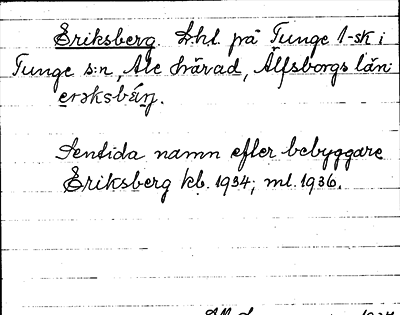 Eriksberg. Lhl. på Tunge 1-sk i
Tunge s:n, Ale härad, Älfsborgs län
Sentida namn efter bebyggare
Eriksberg kb. 1934; ml. 1936.